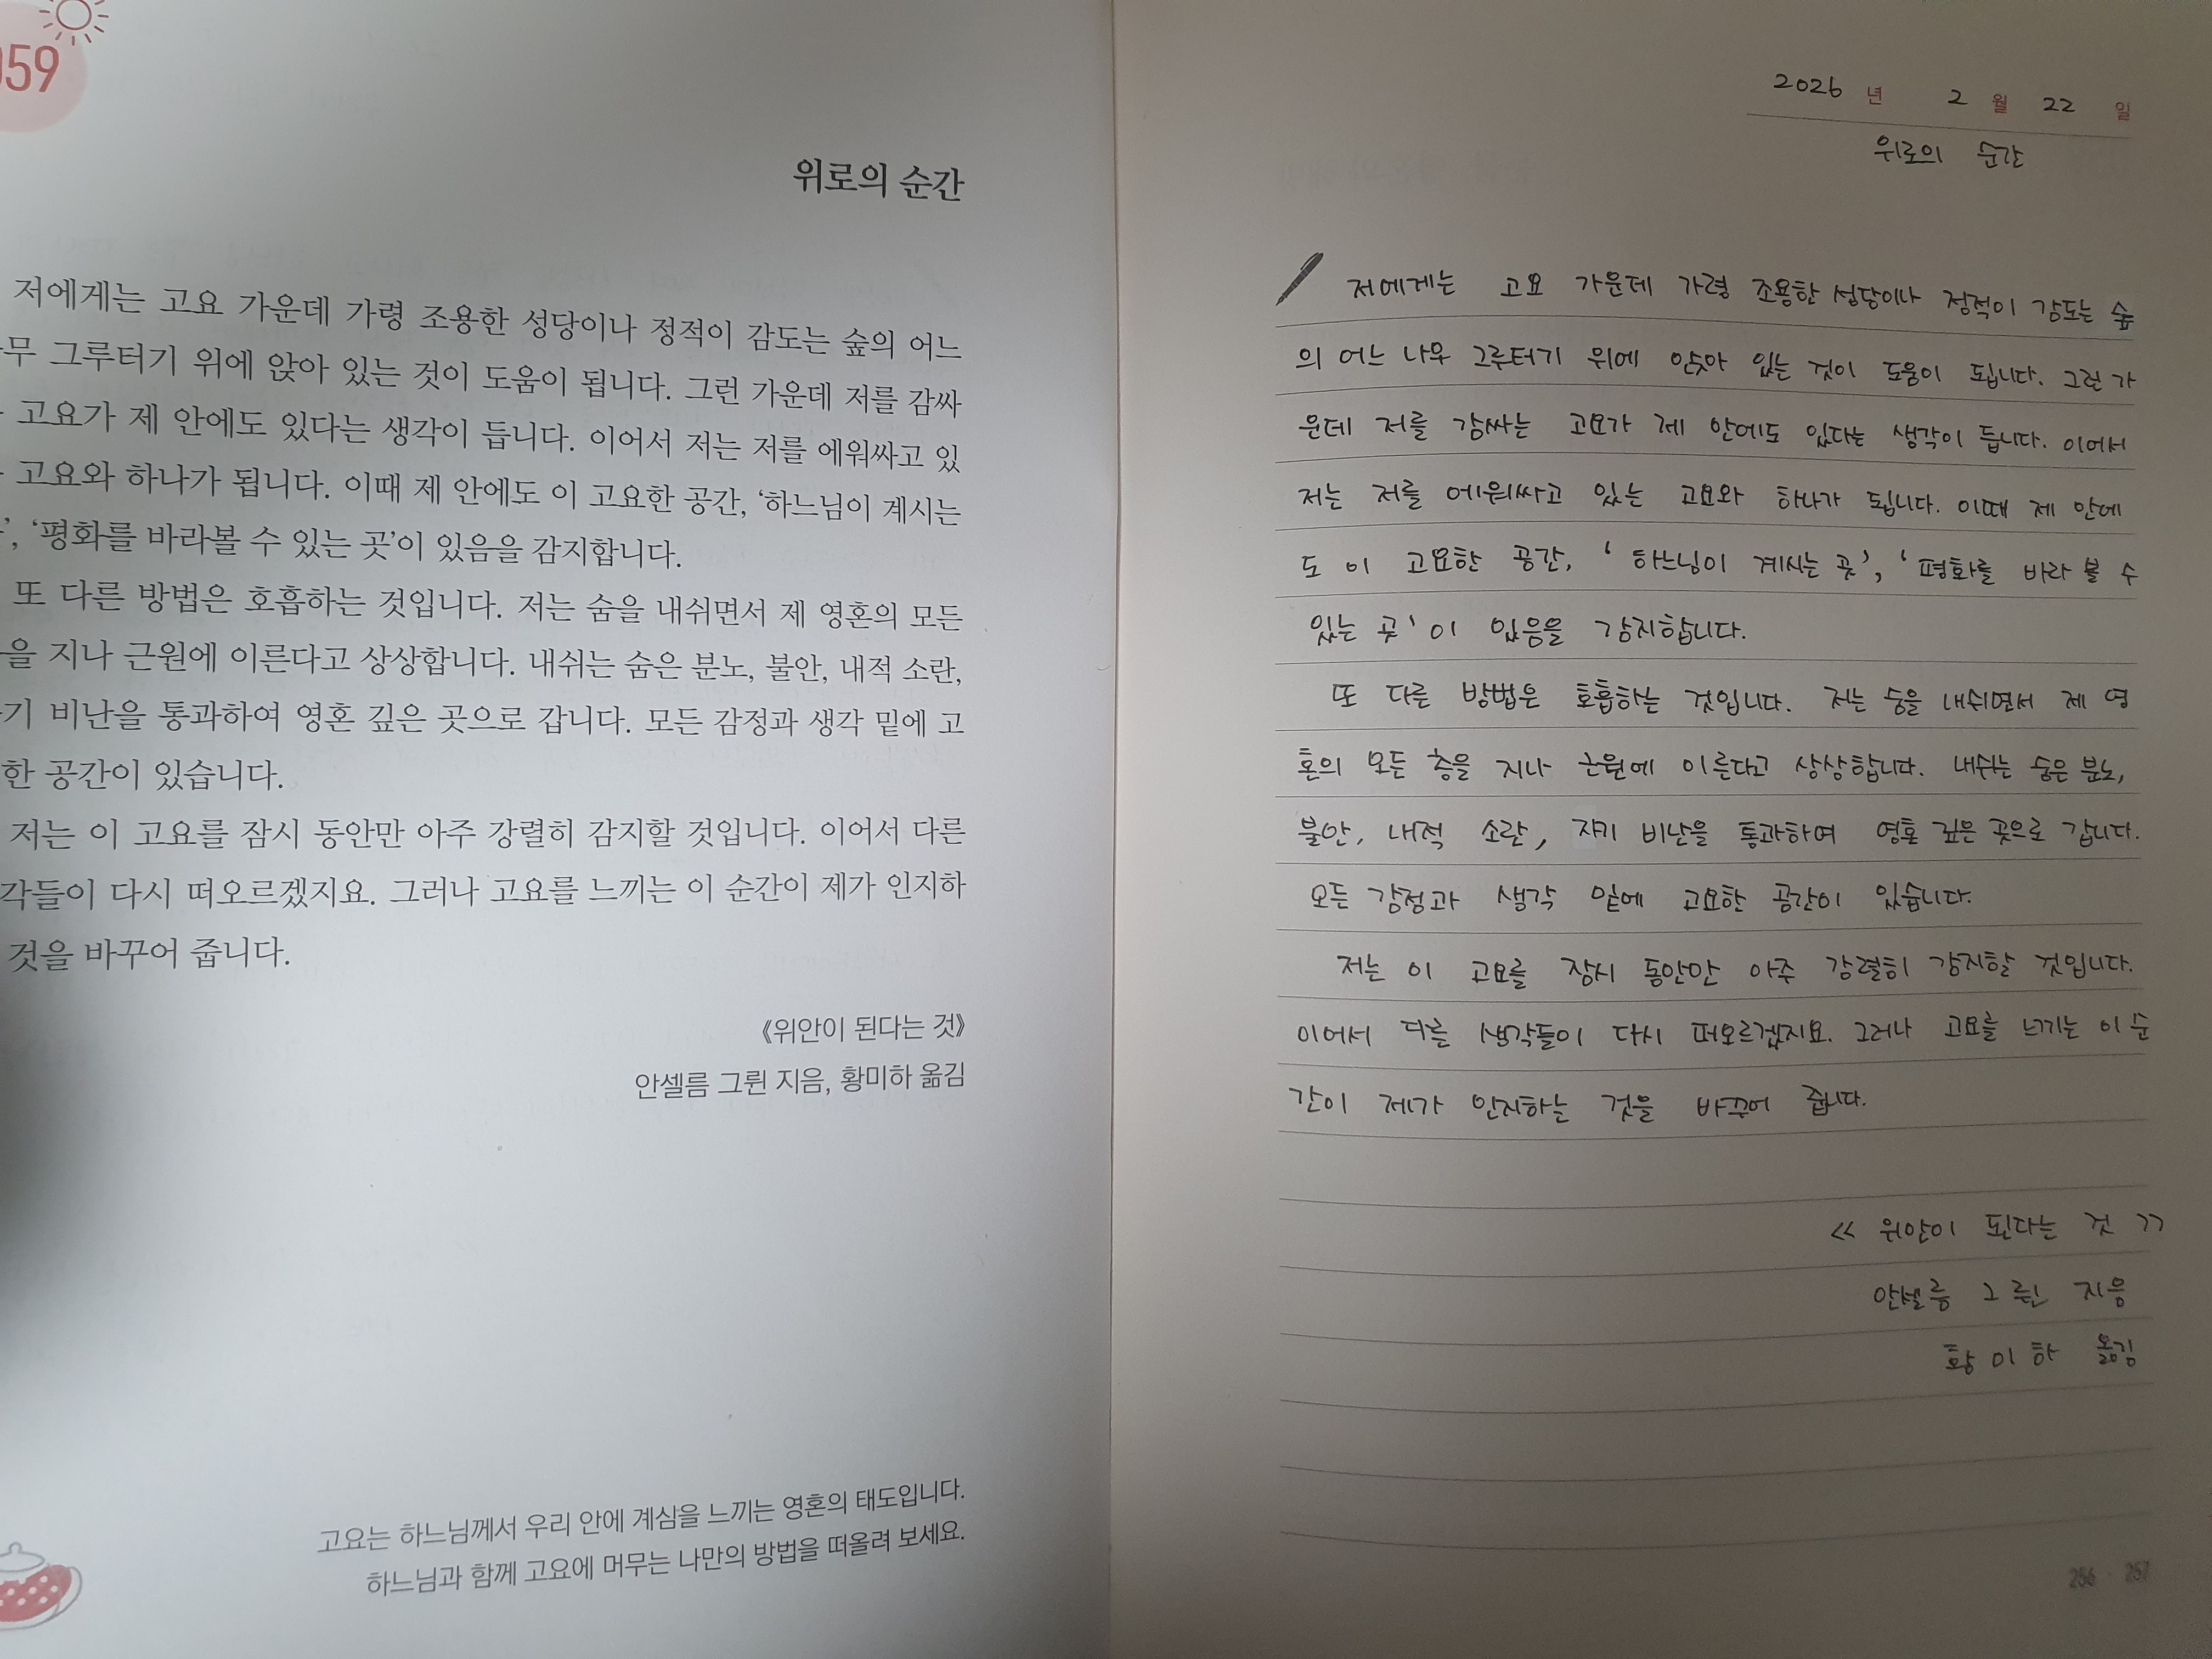 059
위로의 순간
저에게는 고요 가운데 가령 조용한 성당이나 정적이 감도는 숲의 어느
무 그루터기 위에 앉아 있는 것이 도움이 됩니다. 그런 가운데 저를 감싸
고요가 제 안에도 있다는 생각이 듭니다. 이어서 저는 저를 에워싸고 있
고요와 하나가 됩니다. 이때 제 안에도 이 고요한 공간, ‘하느님이 계시는
’, ‘평화를 바라볼 수 있는 곳’이 있음을 감지합니다.
또 다른 방법은 호흡하는 것입니다. 저는 숨을 내쉬면서 제 영혼의 모든
을 지나 근원에 이른다고 상상합니다. 내쉬는 숨은 분노, 불안, 내적 소란,
기 비난을 통과하여 영혼 깊은 곳으로 갑니다. 모든 감정과 생각 밑에 고
한 공간이 있습니다.
저는 이 고요를 잠시 동안만 아주 강렬히 감지할 것입니다. 이어서 다른
각들이 다시 떠오르겠지요. 그러나 고요를 느끼는 이 순간이 제가 인지하
것을 바꾸어 줍니다.
《위안이 된다는 것》
안셀름 그륀 지음, 황미하 옮김
고요는 하느님께서 우리 안에 계심을 느끼는 영혼의 태도입니다.
하느님과 함께 고요에 머무는 나만의 방법을 떠올려 보세요.
2026 년 2 월 22 일
위로의 순간
저에게는 고요 가운데 가령 조용한 성당이나 정적이 감도는 숲
의 어느 나무 그루터기 위에 앉아 있는 것이 도움이 됩니다. 그런 가
운데 저를 감싸는 고요가 제 안에도 있다는 생각이 듭니다. 이어서
저는 저를 에워싸고 있는 고요와 하나가 됩니다. 이때 제 안에
도 이 고요한 공간, ‘하느님이 계시는 곳’, ‘평화를 바라 볼 수
있는 곳’이 있음을 감지합니다.
또 다른 방법은 호흡하는 것입니다. 저는 숨을 내쉬면서 제 영
혼의 모든 층을 지나 근원에 이른다고 상상합니다. 내쉬는 숨은 분노,
불안, 내적 소란, 자기 비난을 통과하여 영혼 깊은 곳으로 갑니다.
모든 감정과 생각 밑에 고요한 공간이 있습니다.
저는 이 고요를 잠시 동안만 아주 강렬히 감지할 것입니다.
이어서 다른 생각들이 다시 떠오르겠지요. 그러나 고요를 느끼는 이 순
간이 제가 인지하는 것을 바꾸어 줍니다.
<< 위안이 된다는 것 >>
안셀름 그륀 지음
황미하 옮김
256 · 257